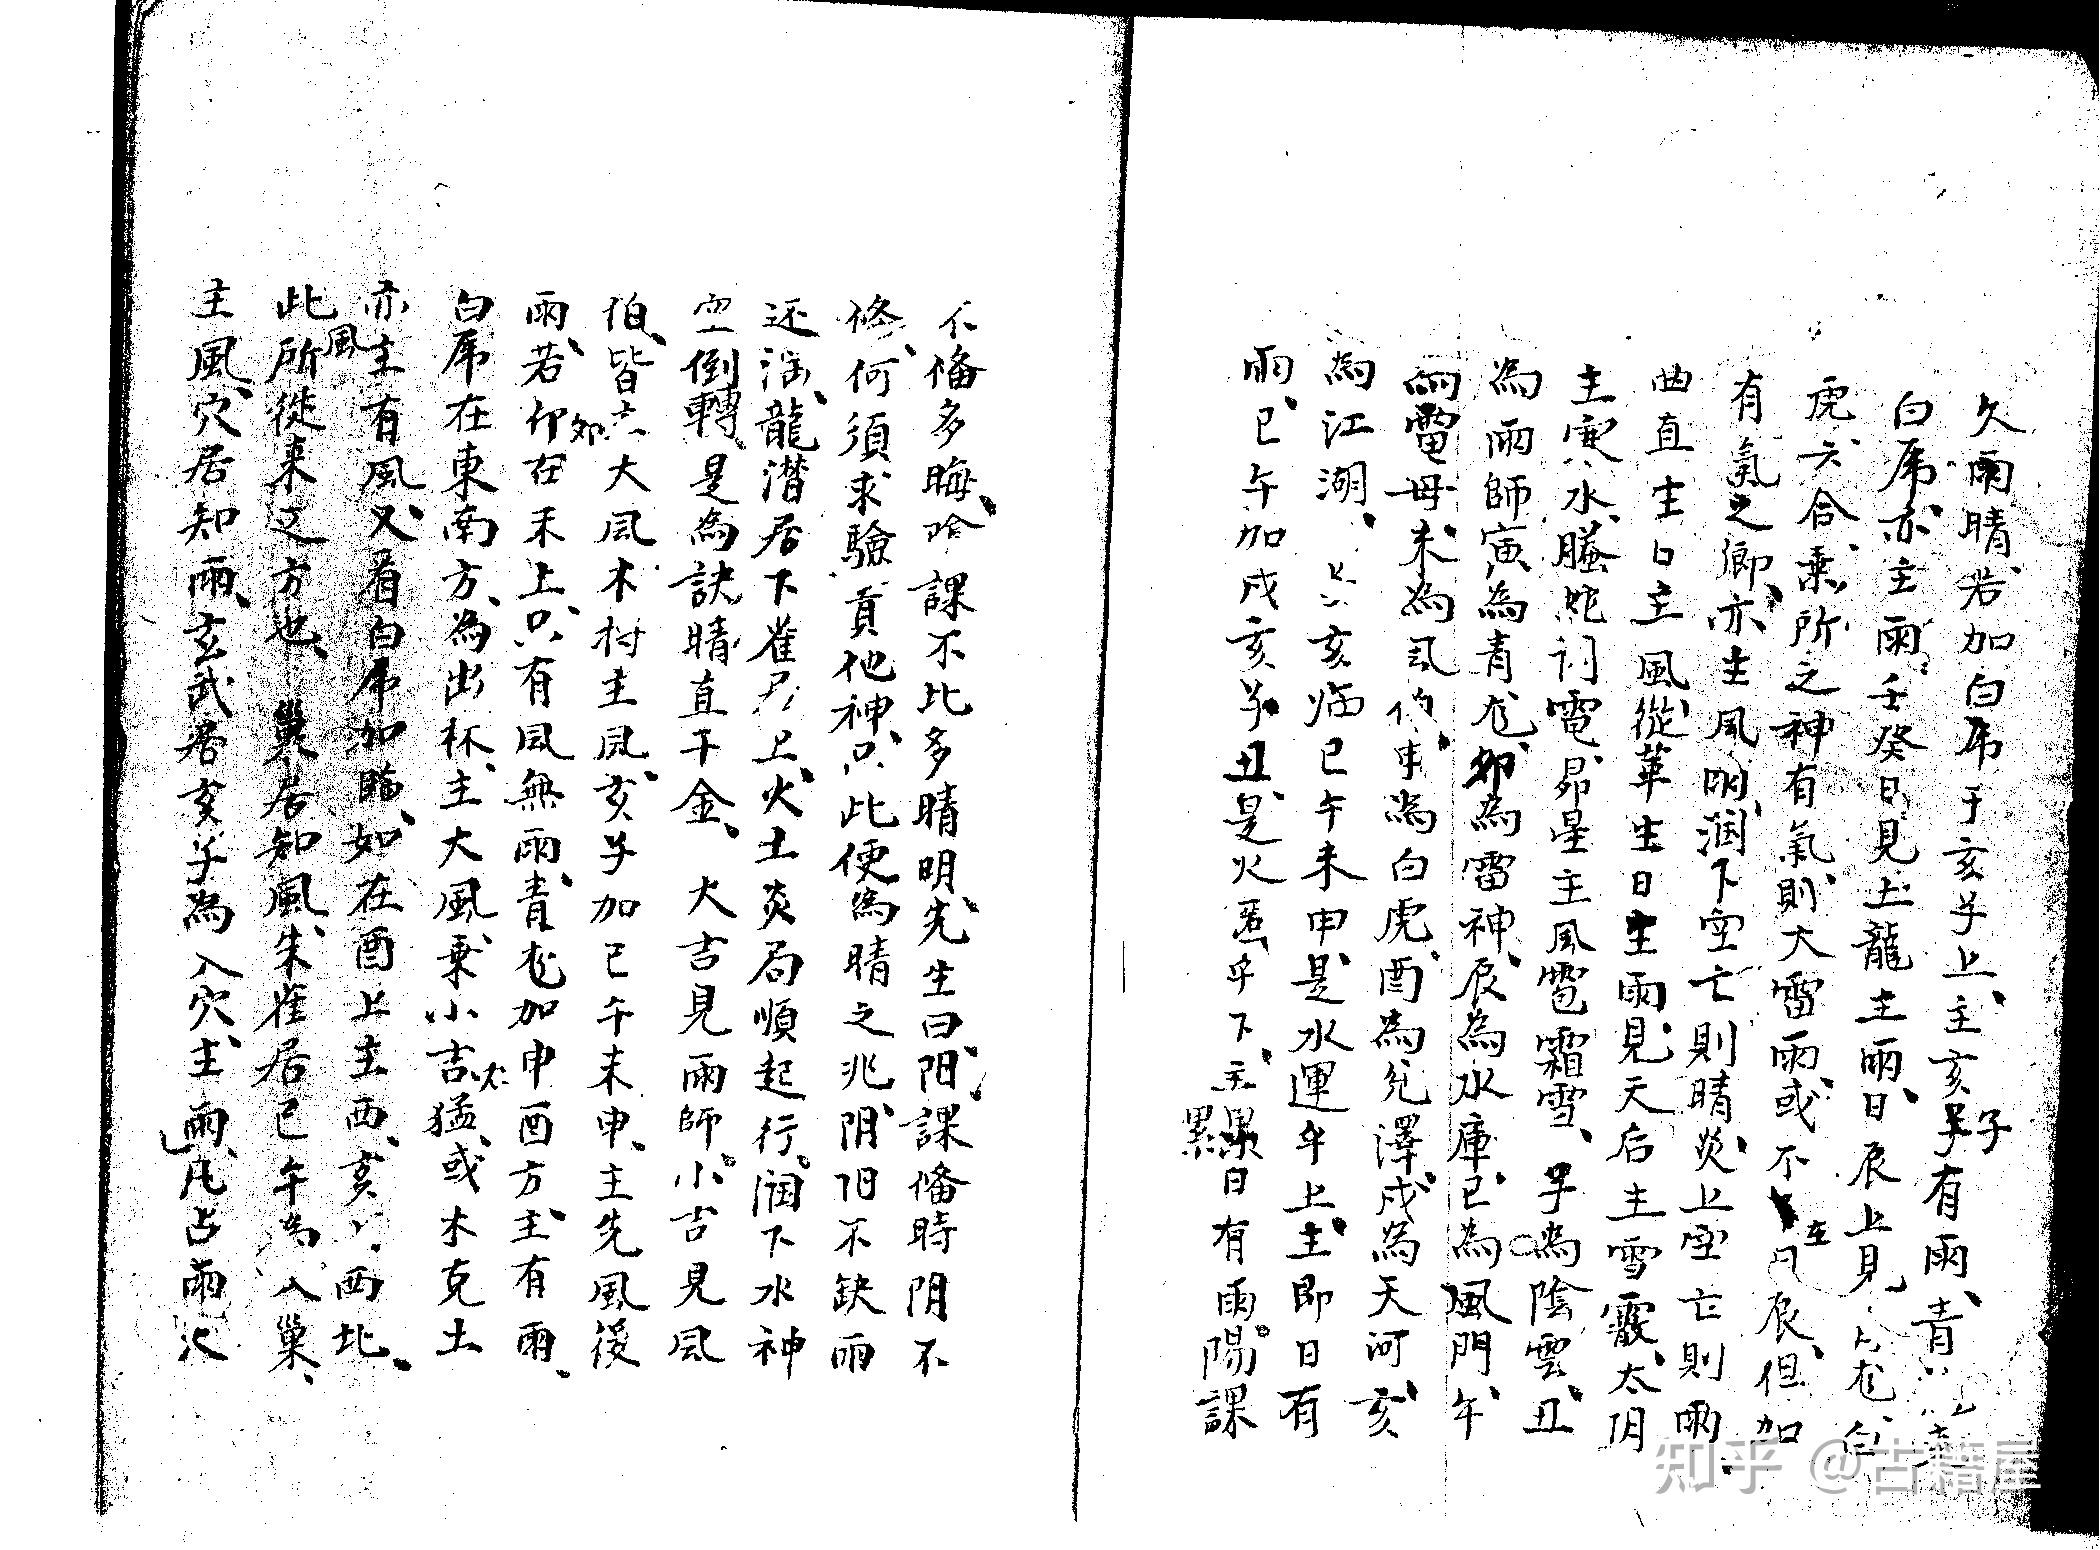 久雨晴、若加白虎于亥子上、主亥子有雨、青
白虎、亦主雨、壬癸日見土龍主雨、日辰上見龙、白
虎、六合、乘所之神有氣、則大雷雨、或不在日辰、但加
有氣之鄉、亦主風、明潤下空亡則晴、炎上空亡則雨、
曲直主日主風、從革生日主雨、見天后主雪霰、太阴
主寒水、螣蛇祠電、昴星主風雹霜雪、子為陰雲、丑
為雨師、寅為青龙、卯為雷神、辰為水庫、巳為風門、午
為電母、未為風伯、申為白虎、酉為兑澤、戌為天河、亥
為江湖、亥临巳午未申、是水運乎上、主即日有
雨、巳午加戌亥子丑、是火匿乎下、主累日有雨。陽課
不偹多晦、陰課不比多晴明、先生曰、阳課偹時阴不
偹、何須求驗貢他神、只此便為晴之兆、阴阳不缺雨
还临、龍潛居下雀上、火土炎局順起行、润下水神
空倒轉、是為訣晴直千金、大吉見雨師、小吉見風
伯、皆大風、木村主風、亥子加巳午未申、主先風後
雨、若卯在未上、只有風無雨、青龙加申酉方、主有雨、
白虎在東南方、為出林、主大風、乘小吉猛、或木克土
亦主有風、又看白虎加臨、如在酉上主西、亥西北、
此風所從来之方也、巢居知風、朱雀居巳午為入巢、
主風、穴居知雨、玄武居亥子為入穴、主雨、凡占雨
知乎 @古籍屋